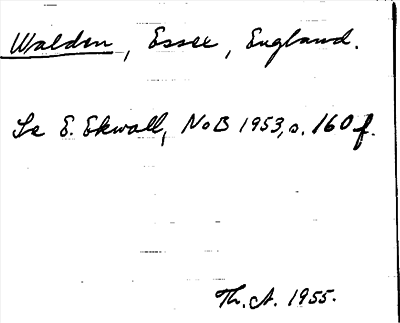 Walden, Essex, England.
Se E. Ekwall, NoB 1953, s. 160 f.
Th. A. 1955.